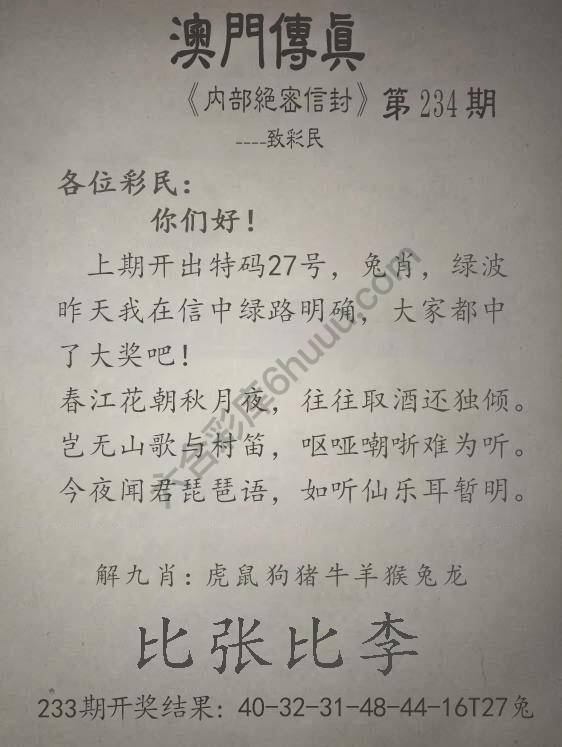 澳門傳真
《内部絕密信封》第234期
----致彩民
各位彩民：
你们好！
上期开出特码27号，兔肖，绿波
昨天我在信中绿路明确，大家都中
了大奖吧！
春江花朝秋月夜，往往取酒还独倾。
岂无山歌与村笛，呕哑嘲哳难为听。
今夜闻君琵琶语，如听仙乐耳暂明。
六合彩库6huuu.com
解九肖：虎鼠狗猪牛羊猴兔龙
比张比李
233期开奖结果：40-32-31-48-44-16T27兔